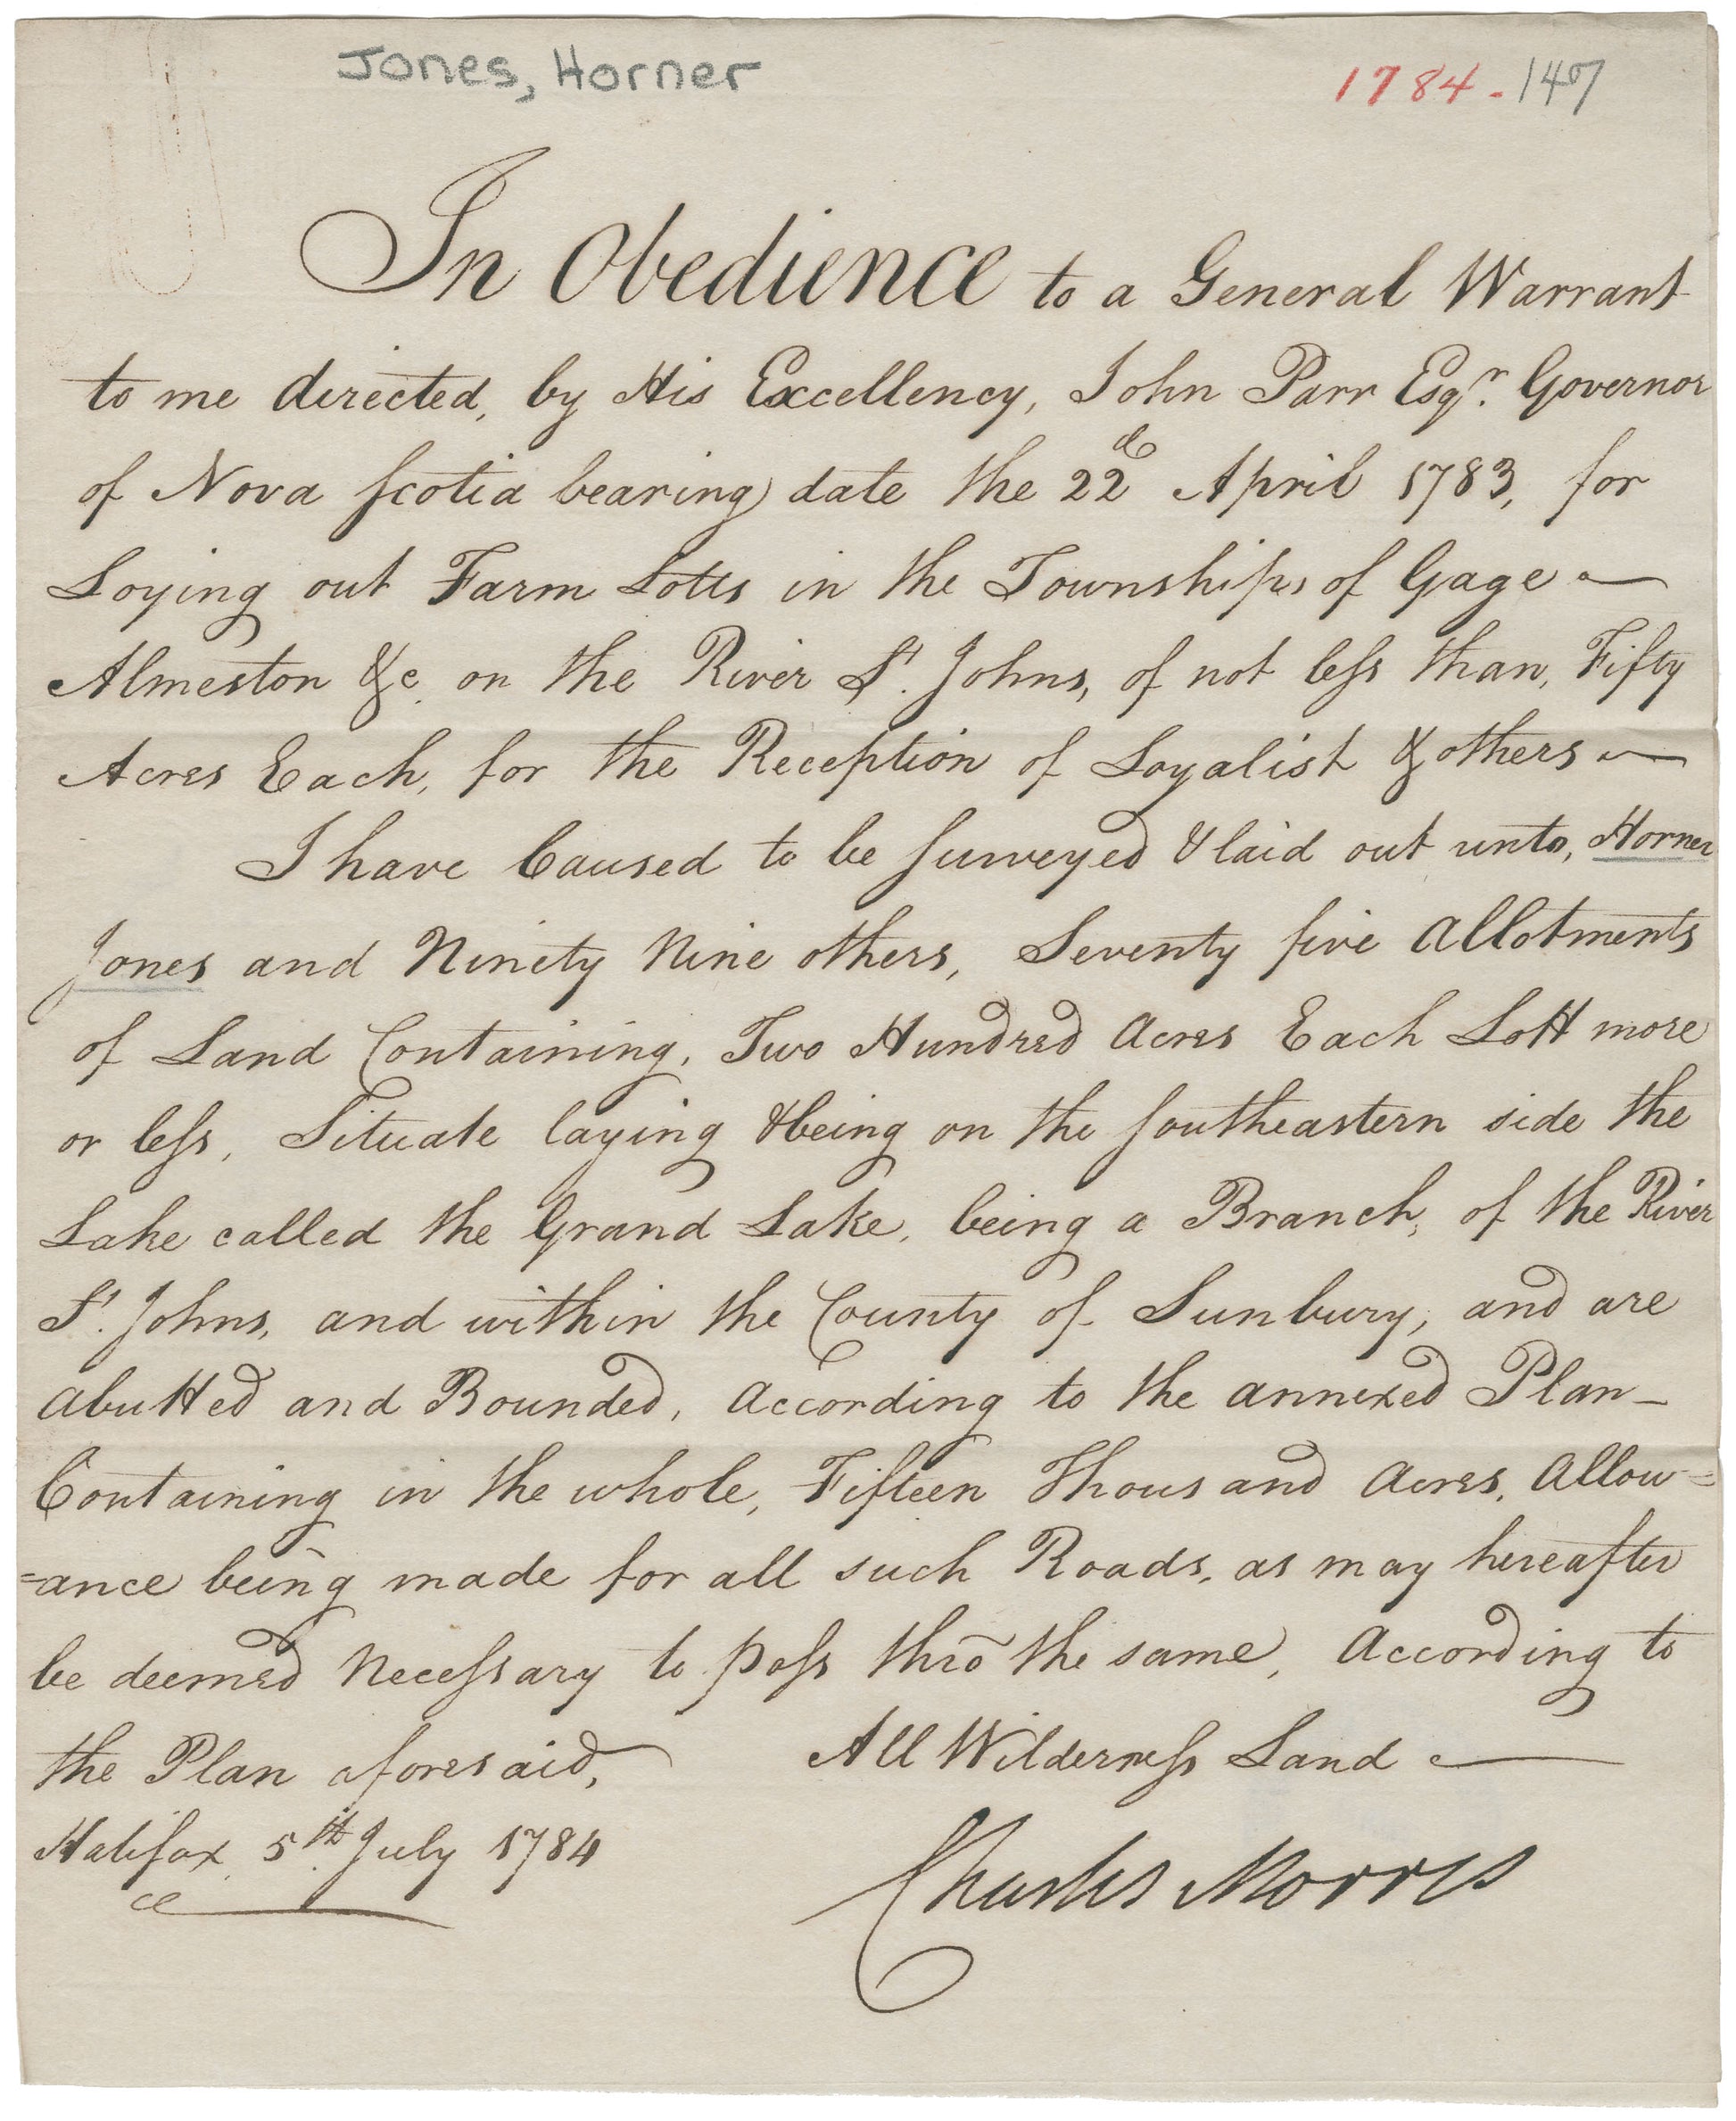 Jones, Horner
1784-147
In Obedience to a General Warrant
to me directed, by His Excellency, John Parr Esqr. Governor
of Nova Scotia bearing date the 22d April 1783, for
Loying out Farm Lotts in the Townships of Gage —
Almeston &c. on the River St. Johns, of not less than, Fifty
Acres Each, for the Reception of Loyalist & others —
I have Caused to be Surveyed & laid out unto, Horner
Jones and Ninety Nine others, Seventy five Allotments
of Land Containing, Two Hundred Acres Each Lott more
or less, Situate laying & being on the Southeastern side the
Lake called the Grand Lake, being a Branch, of the River
St. Johns, and within the County of Sunbury, and are
abutted and Bounded, According to the annexed Plan —
Containing in the whole, Fifteen Thousand Acres, Allow=
=ance being made for all such Roads, as may hereafter
be deemed Necessary to pass thrõ the same, According to
the Plan aforesaid, All Wilderness Land —
Halifax, 5th July 1784
Charles Morris